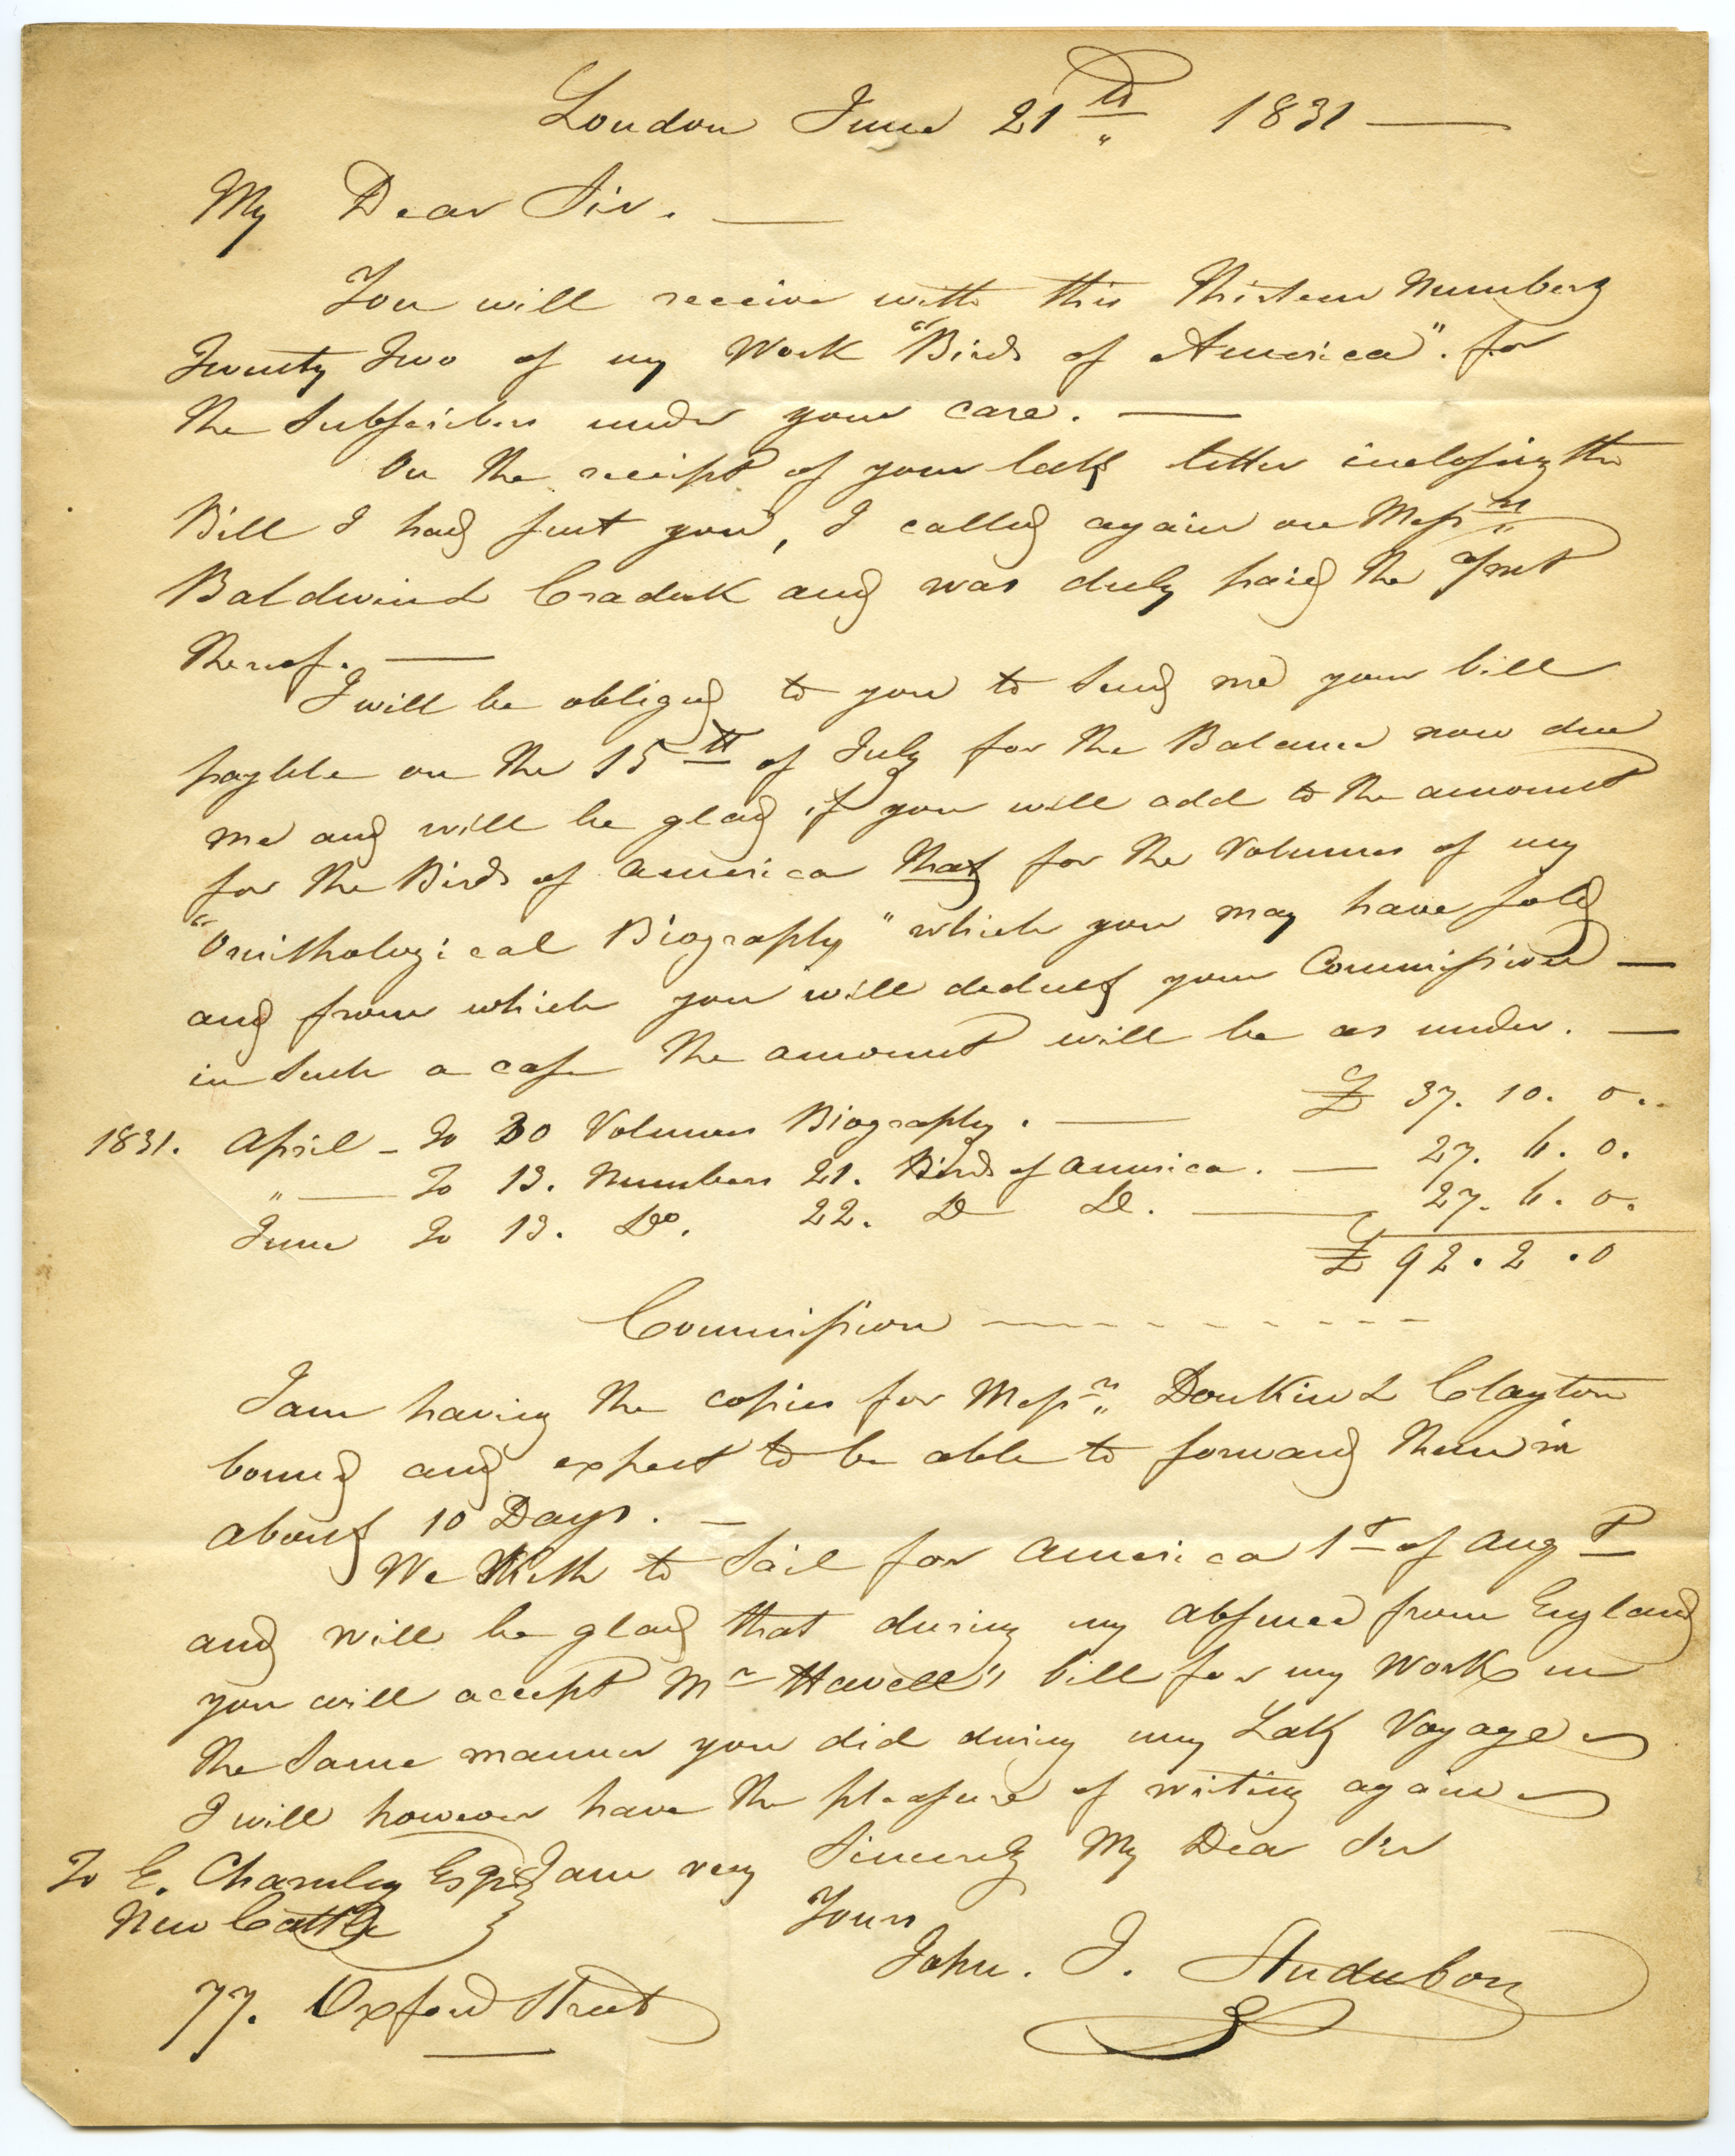 London June 21th 1831 —
My Dear Sir. —
You will receive with this Thirteen Numbers
Twenty Two of my Work "Birds of America". for
the Subscribers under your care. —
On the receipt of your last letter inclosing the
Bill I had sent you, I called again on Messrs
Baldwin & Cradock and was duly paid the Amt
thereof. —
I will be obliged to you to send me your bill
payble on the 15th of July for the Balance now due
me and will be glad if you will add to the amount
for the Birds of America that for the Volumes of my
"Ornithological Biography" which you may have sold
and from which you will deduct your Commission —
in such a case the amount will be as under. —
1831. April – To 30 Volumes Biography. — £ 37. 10. 0..
" — To 13. Numbers 21. Birds of America. — 27. 6. 0.
June To 13. Do. 22. D D. — 27. 6. 0.
£ 92. 2. 0
Commission — - - - - - - -
I am having the copies for Messrs Donkin & Clayton
bound and expect to be able to forward them in
about 10 Days. —
We Wish to Sail for America 1st of Augt
and will be glad that during my absence from England
you will accept Mr Havell's bill for my Work in
the same manner you did during my Last Voyage
I will however have the pleasure of writing again
I am very Sincerely My Dear Sir
To E. Charnley Esqr
New Castle
Yours
John. J. Audubon
77. Oxford Street